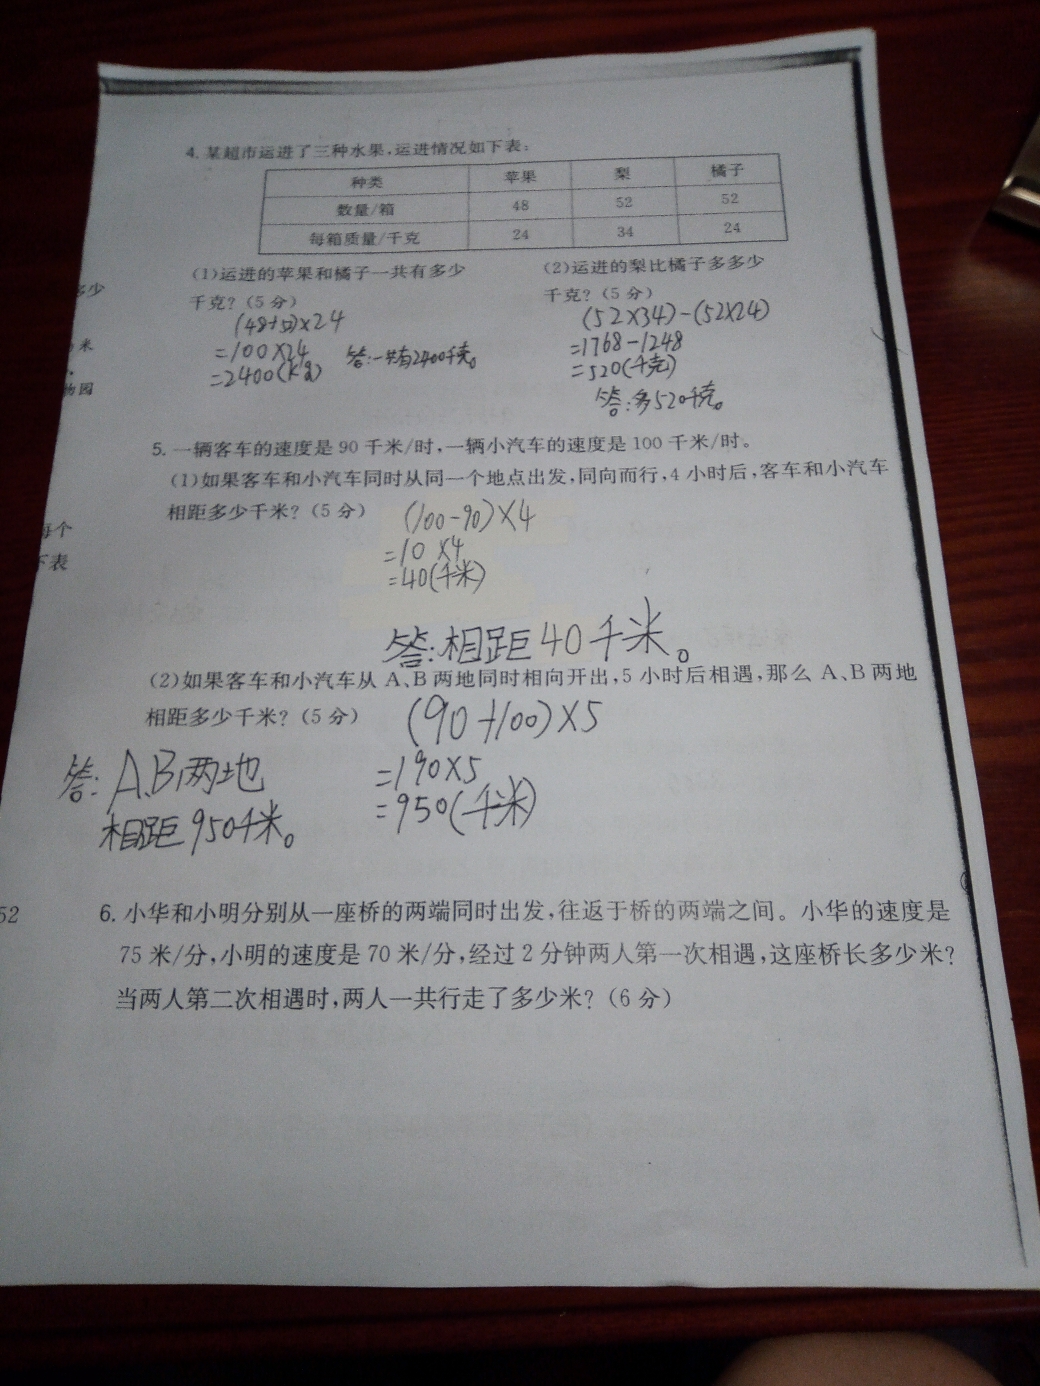 4. 某超市运进了三种水果,运进情况如下表:
种类 苹果 梨 橘子
数量/箱 48 52 52
每箱质量/千克 24 34 24
(1)运进的苹果和橘子一共有多少
千克?(5分)
(48+52)×24
=100×24
=2400(kg)
答:一共有2400千克。
(2)运进的梨比橘子多多少
千克?(5分)
(52×34)-(52×24)
=1768-1248
=520(千克)
答:多520千克。
多少
米
物园
5. 一辆客车的速度是90千米/时,一辆小汽车的速度是100千米/时。
(1)如果客车和小汽车同时从同一个地点出发,同向而行,4小时后,客车和小汽车
相距多少千米?(5分)
(100-90)×4
=10×4
=40(千米)
答:相距40千米。
每个
下表
(2)如果客车和小汽车从A、B两地同时相向开出,5小时后相遇,那么A、B两地
相距多少千米?(5分)
(90+100)×5
=190×5
=950(千米)
答:A、B两地
相距950千米。
52
6. 小华和小明分别从一座桥的两端同时出发,往返于桥的两端之间。小华的速度是
75米/分,小明的速度是70米/分,经过2分钟两人第一次相遇,这座桥长多少米?
当两人第二次相遇时,两人一共行走了多少米?(6分)